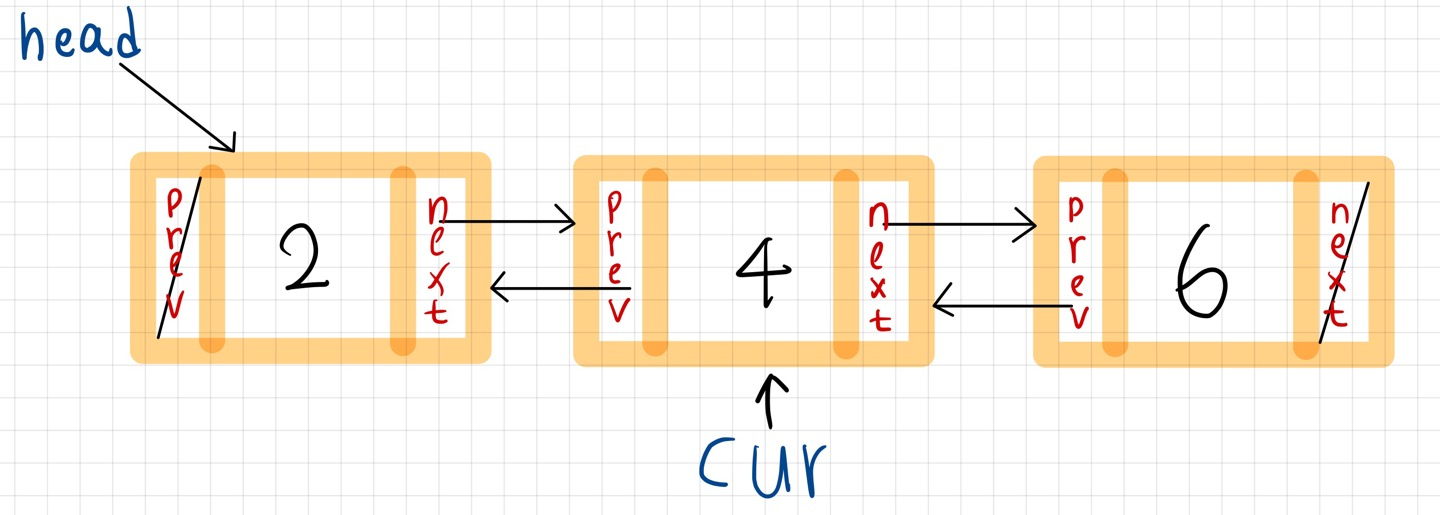 head
prev 2 next prev 4 next prev 6 next
cur